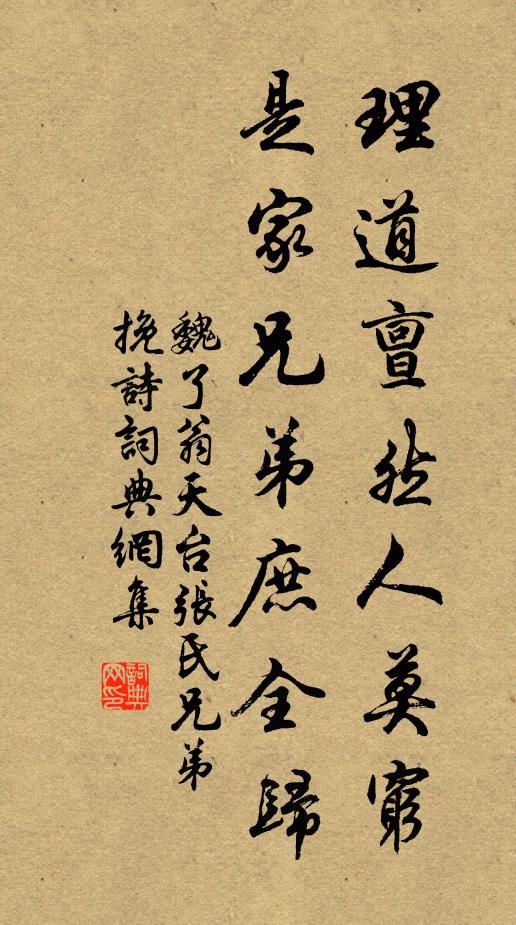 理道亶然人莫窮
是家兄弟庶全歸
魏了翁天台張氏兄弟
挽詩詞典網集
詞典網印